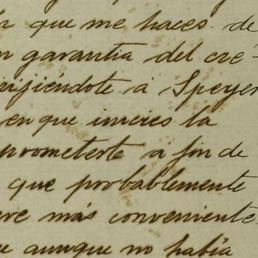 que me haces de
garantia del cré-
rijiéndote á Speyer
en que inicies la
prometerte a fin de
que probablemente
más conveniente
aunque no había